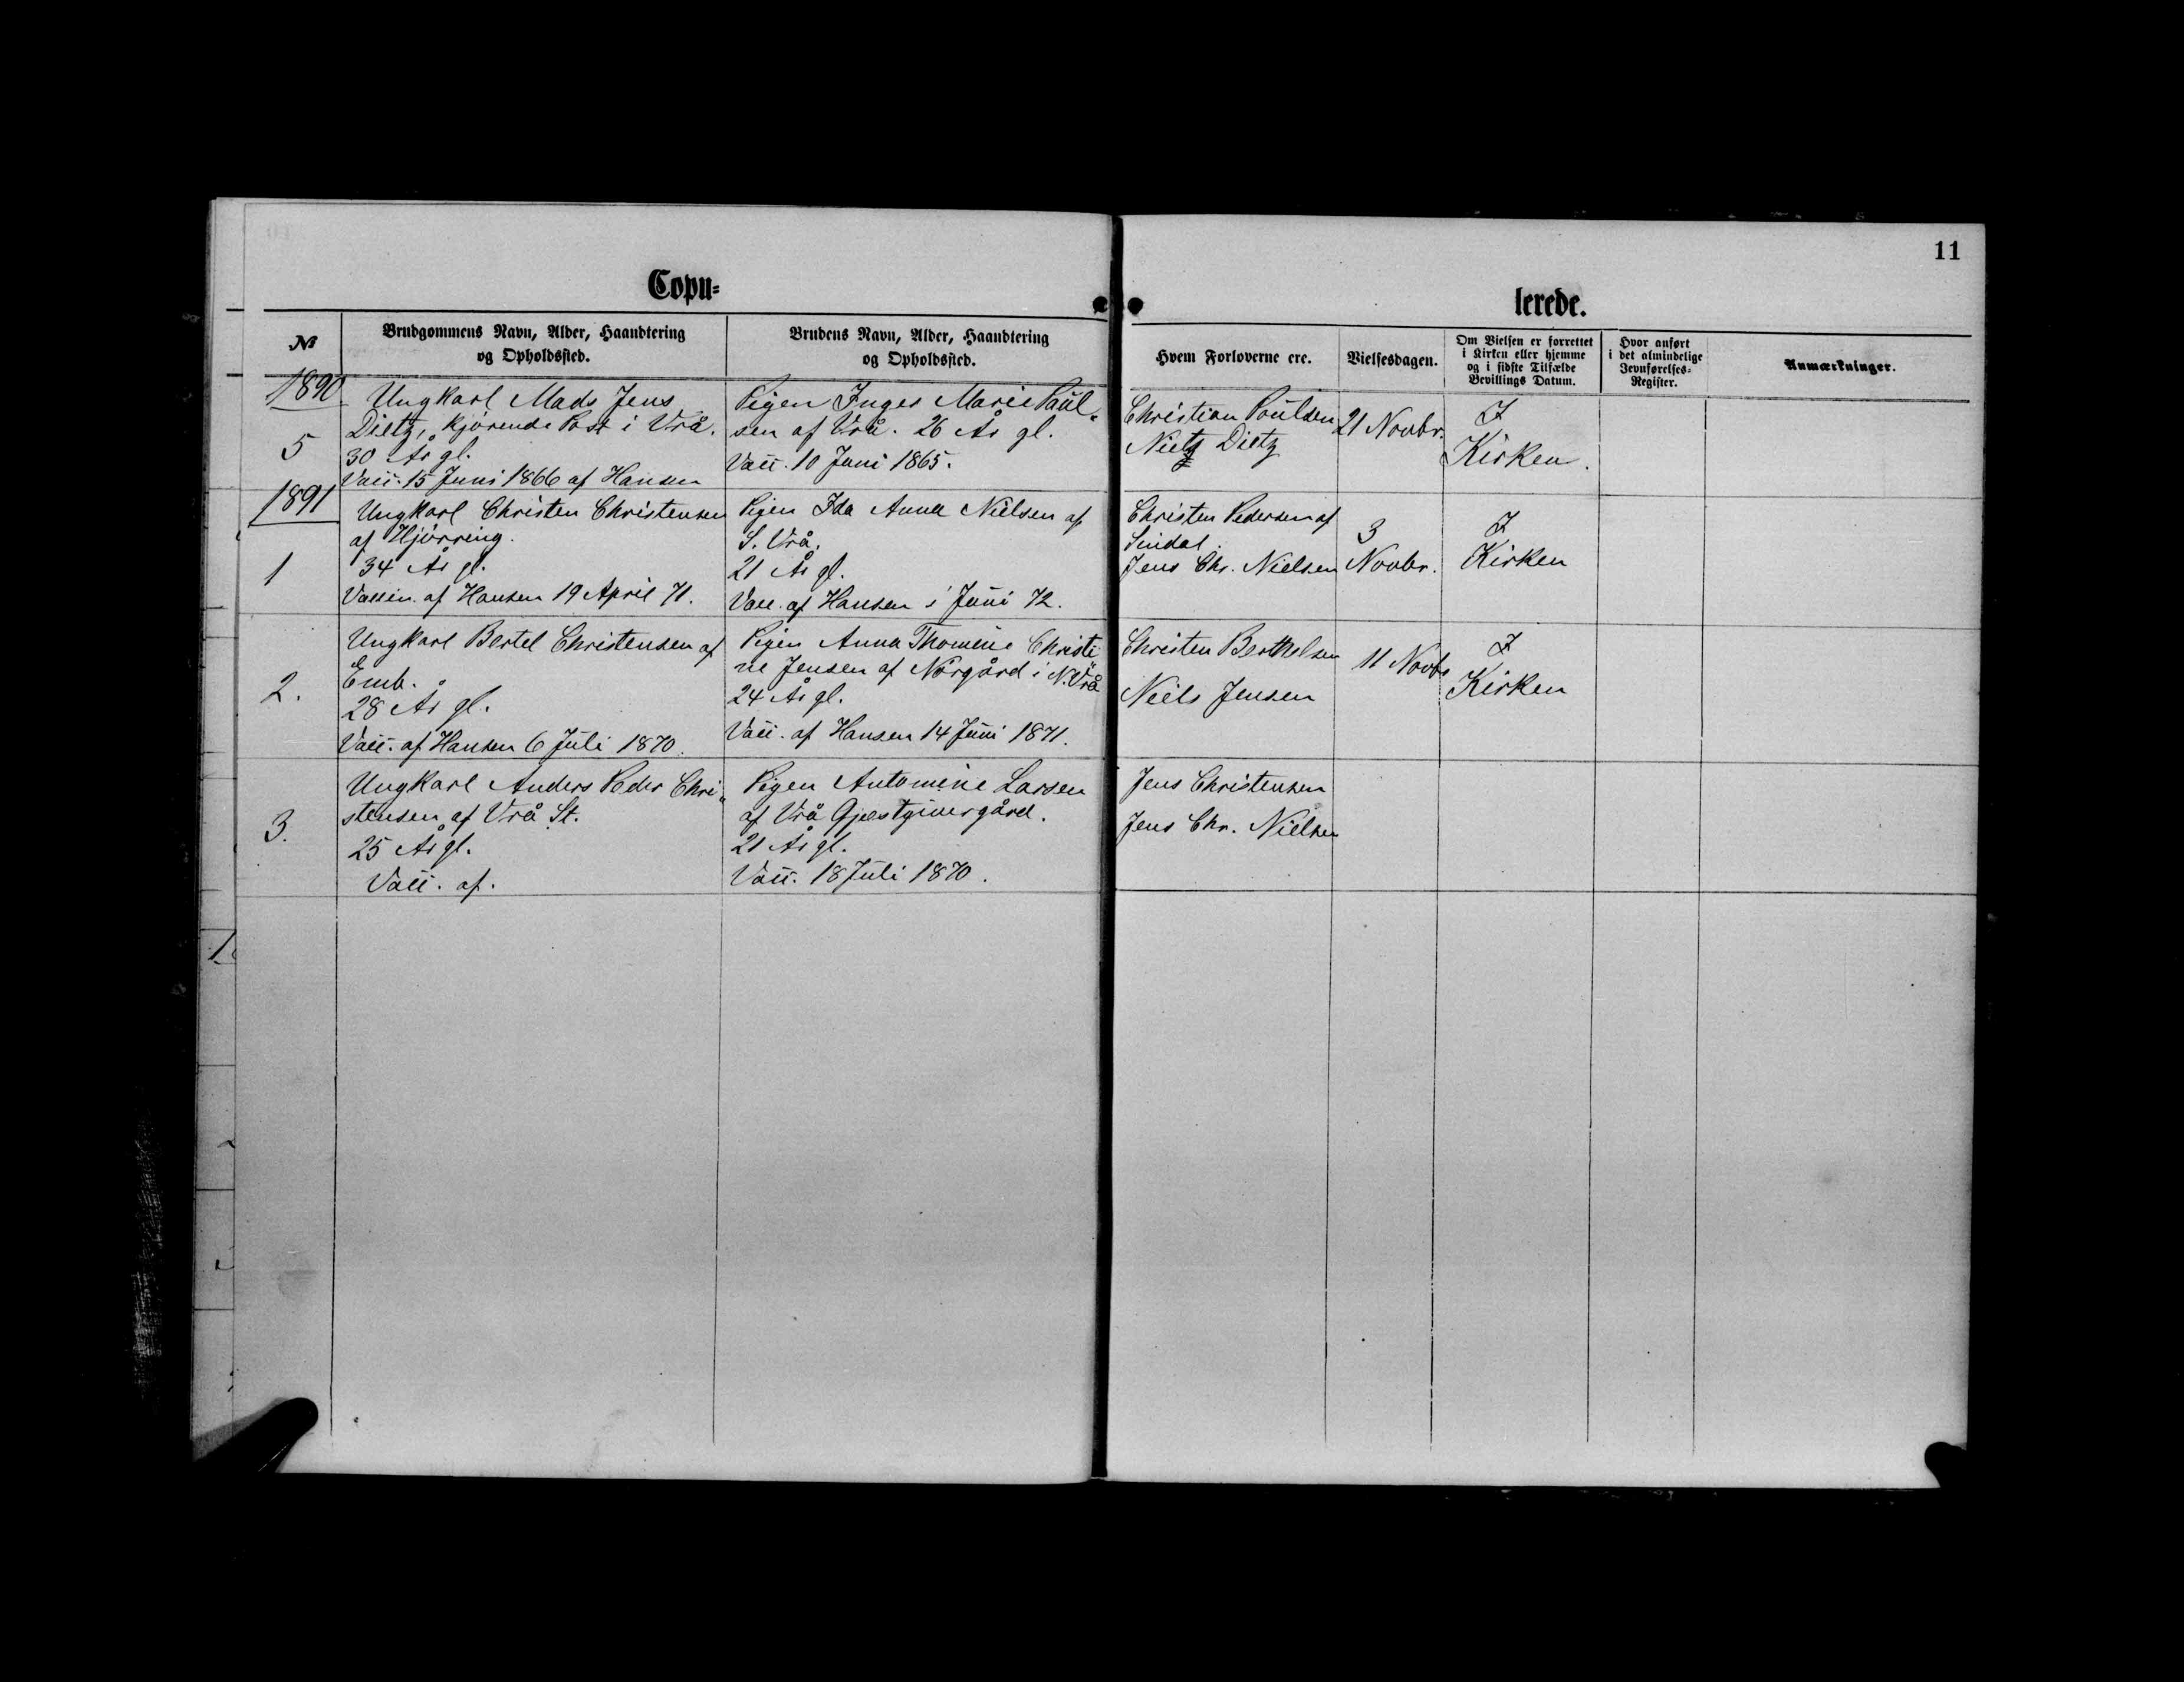 11
Copu=
lerede.
№
Brudgommens Navn, Alder, Haandtering
og Opholdssted.
Brudens Navn, Alder, Haandtering
og Opholdssted.
Hvem Forloverne ere.
Vielsesdagen.
Om Vielsen er forrettet
i Kirken eller hjemme
og i sidste Tilfælde
Bevillings Datum.
Hvor anført
i det almindelige
Jevnførelses=
Register.
Anmærkninger.
1890
5
Ungkarl Mads Jens
Dietz, kjørende Post i Vrå.
30 År gl.
Vacc. 15 Juni 1866 af Hansen
Pigen Inger Marie Poul„
sen af Vrå. 26 År gl.
Vacc. 10 Juni 1865.
Christian Poulsen
Dietz
21 Novbr.
I
Kirken.
1891
1
Ungkarl Christen Christensen
af Hjörring.
34 År gl.
Vaccin. af Hansen 19 April 71.
Pigen Ida Anna Nielsen af
S. Vrå.
21 År gl.
Vacc. af Hansen i Juni 72.
Christen Pedersen af
Sindal.
Jens Chr. Nielsen
3
Novbr.
I
Kirken
2.
Ungkarl Bertel Christensen af
Emb.
28 År gl.
Vacc. af Hansen 6 Juli 1870.
Pigen Anna Thomine Christi„
ne Jensen af Nörgård i N. Vrå
24 År gl.
Vacc. af Hansen 14 Juni 1871.
Christen Berthelsen
Niels Jensen
11 Novbr
I
Kirken
3.
Ungkarl Anders Peder Chri„
stensen af Vrå St.
25 År gl.
Vacc. af.
Pigen Antomine Larsen
af Vrå Gjæstgivergård.
21 År gl.
Vacc. 18 Juli 1870.
Jens Christensen
Jens Chr. Nielsen
1